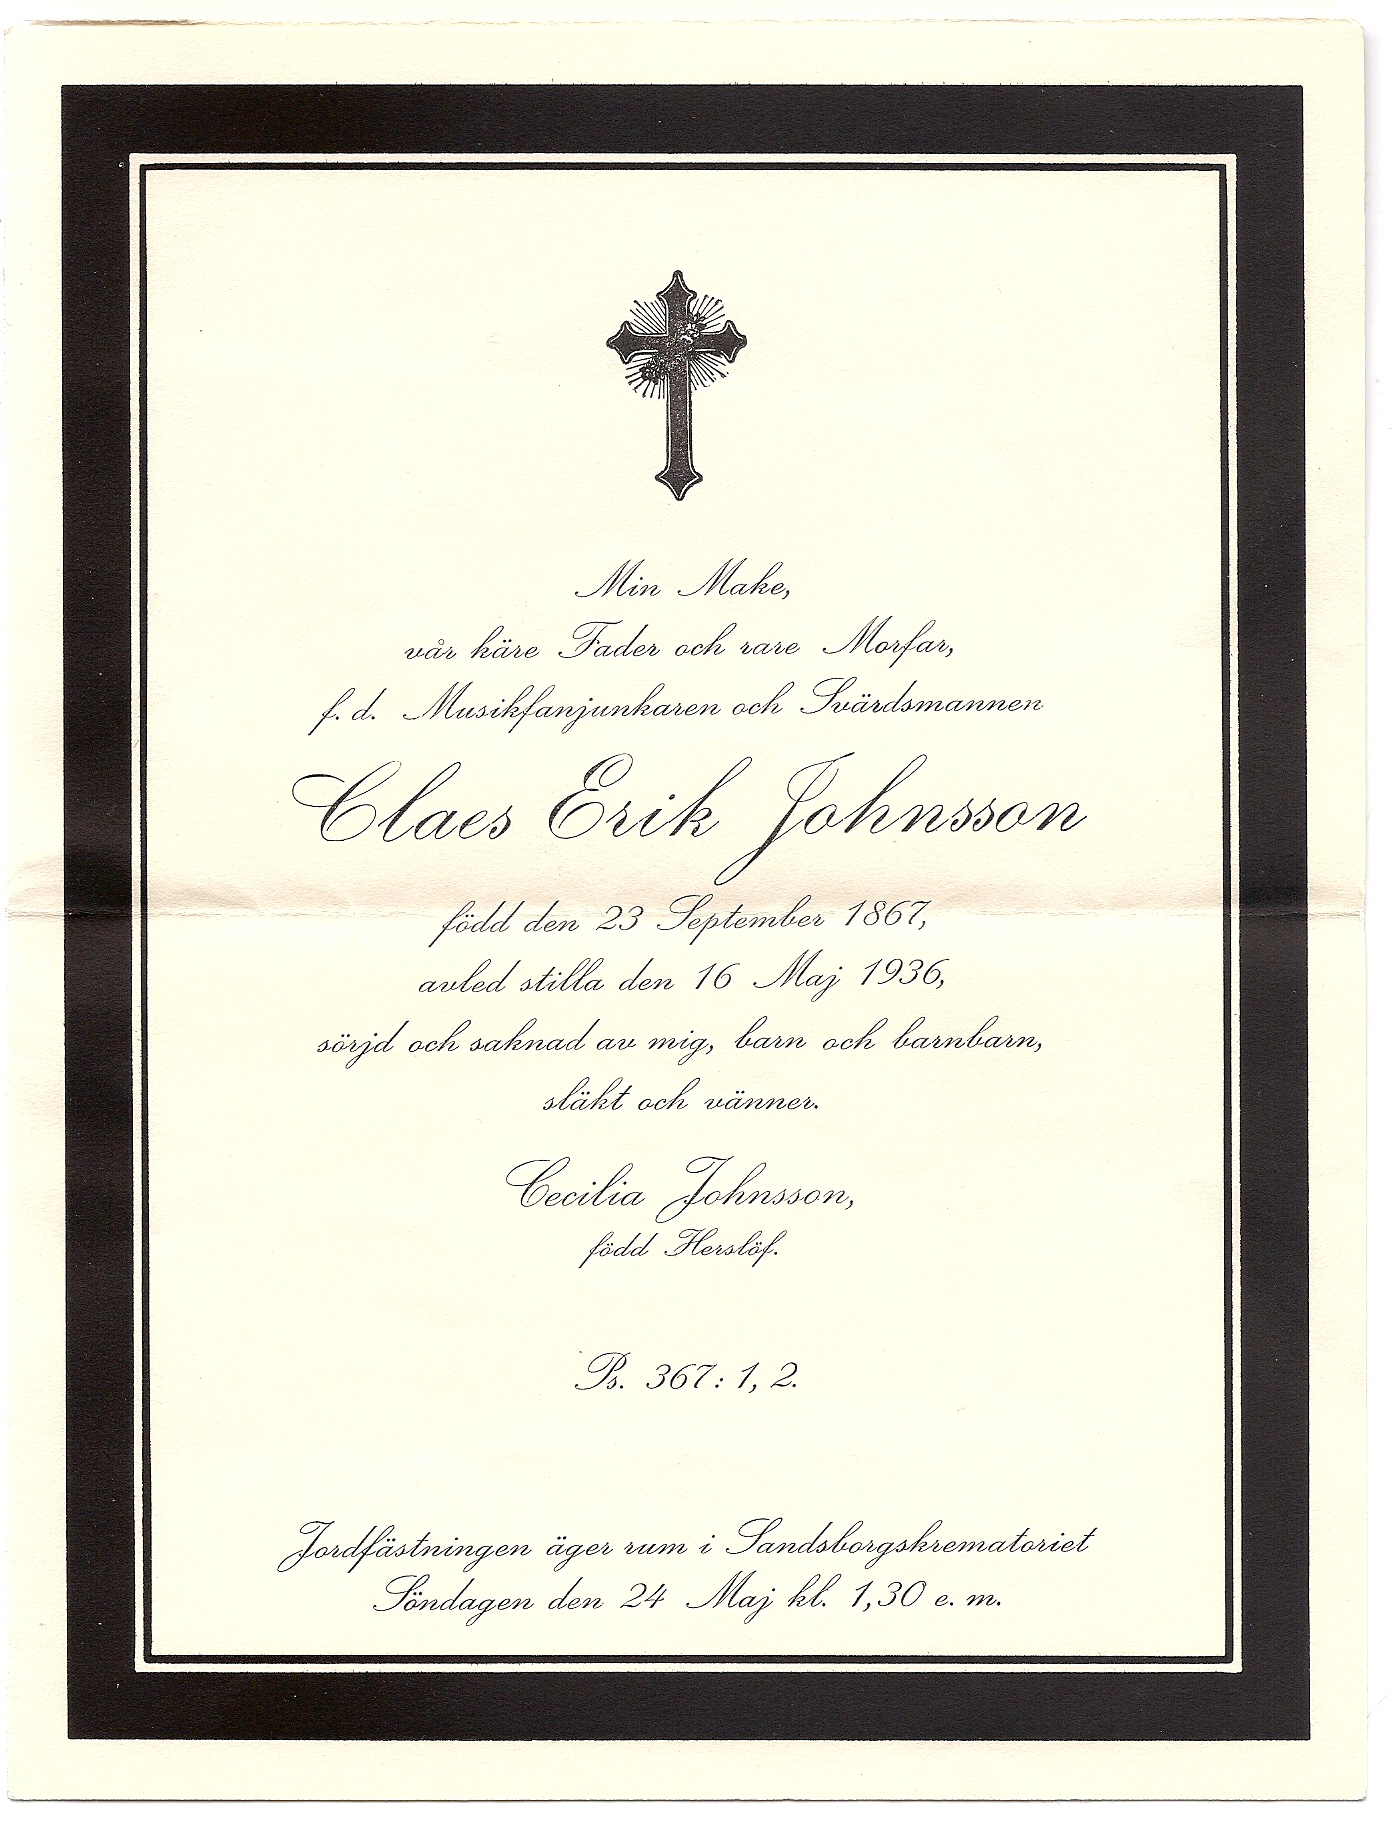 Min Make,
vår käre Fader och rare Morfar,
f. d. Musikfanjunkaren och Svärdsmannen
Claes Erik Johnsson
född den 23 September 1867,
avled stilla den 16 Maj 1936,
sörjd och saknad av mig, barn och barnbarn,
släkt och vänner.
Cecilia Johnsson,
född Herslöf.
Ps. 367: 1, 2.
Jordfästningen äger rum i Sandsborgskrematoriet
Söndagen den 24 Maj kl. 1,30 e. m.